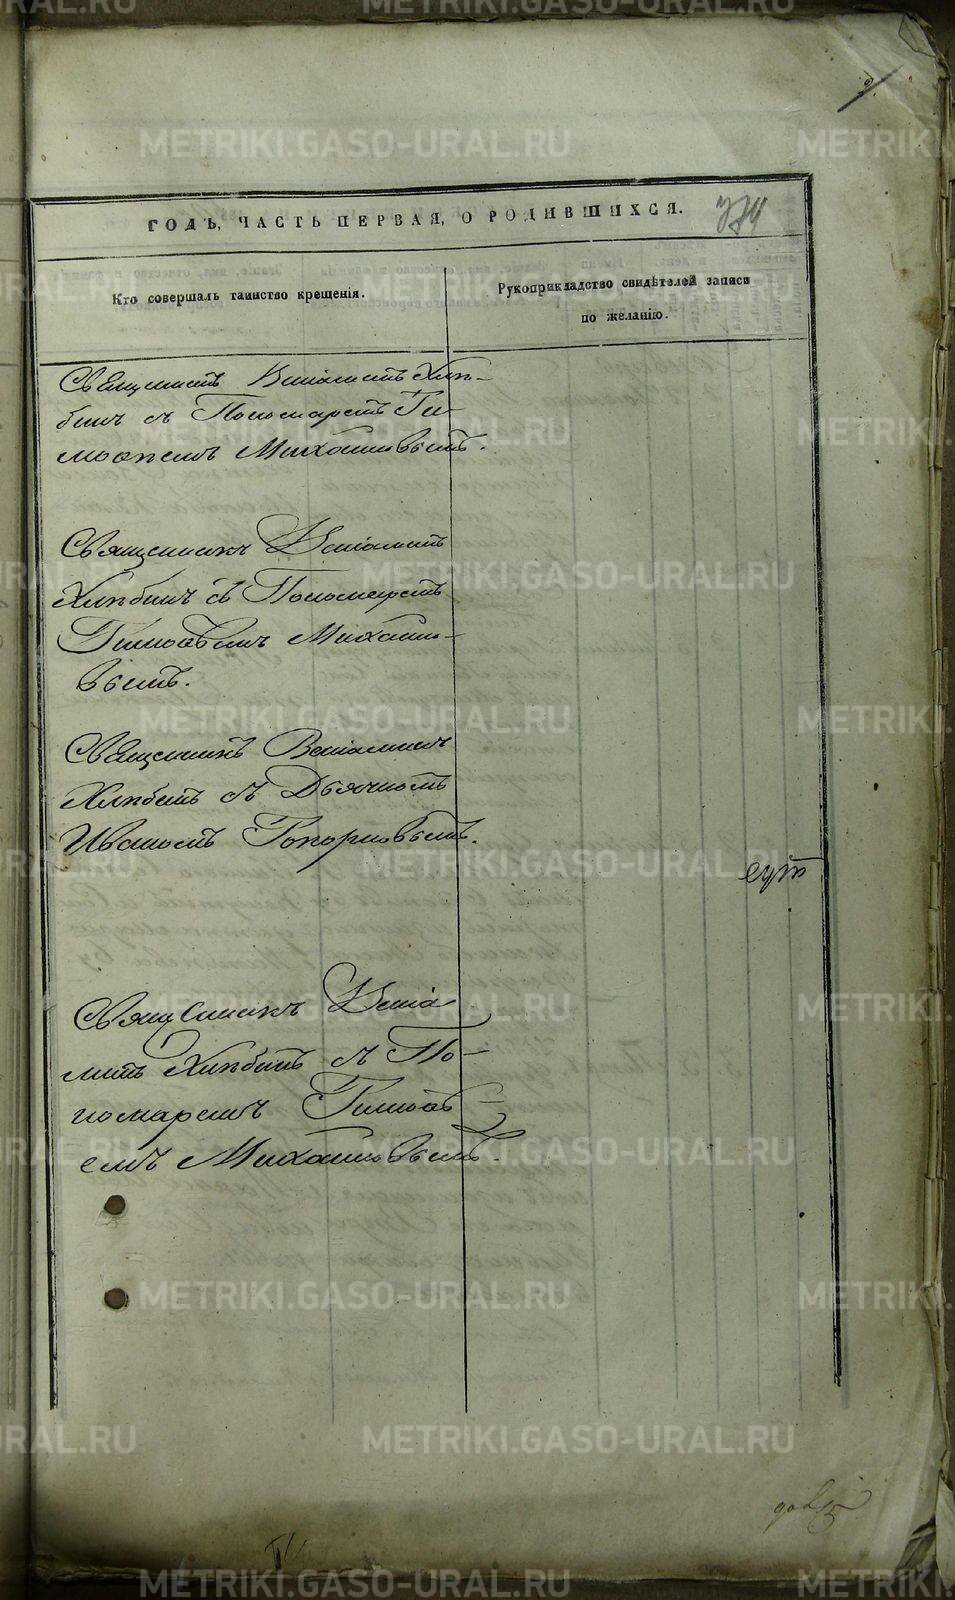 ГОДЪ, ЧАСТЬ ПЕРВАЯ, О РОДИВШИХСЯ.
Кто совершалъ таинство крещенія.
Рукоприкладство свидѣтелей записи
по желанію.
Священникъ Веніаминъ Хлѣ-
бинъ съ Пономаремъ Ти-
мофеемъ Михайловымъ.
Священникъ Веніаминъ
Хлѣбинъ съ Пономаремъ
Тимофѣемъ Михайло-
вымъ.
Священникъ Веніаминъ
Хлѣбинъ съ Дьячкомъ
Иваномъ Топорковымъ.
Священникъ Веніа
минъ Хлѣбинъ съ По-
номаремъ Тимоф-
емъ Михайловымъ.
METRIKI.GASO-URAL.RU